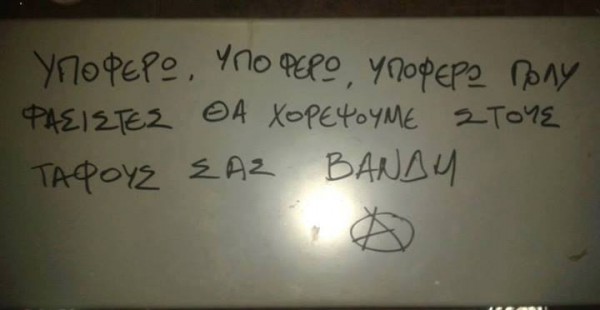 ΥΠΟΦΕΡΩ, ΥΠΟΦΕΡΩ, ΥΠΟΦΕΡΩ ΠΟΛΥ
ΦΑΣΙΣΤΕΣ ΘΑ ΧΟΡΕΨΟΥΜΕ ΣΤΟΥΣ
ΤΑΦΟΥΣ ΣΑΣ ΒΑΝΔΗ
Ⓐ